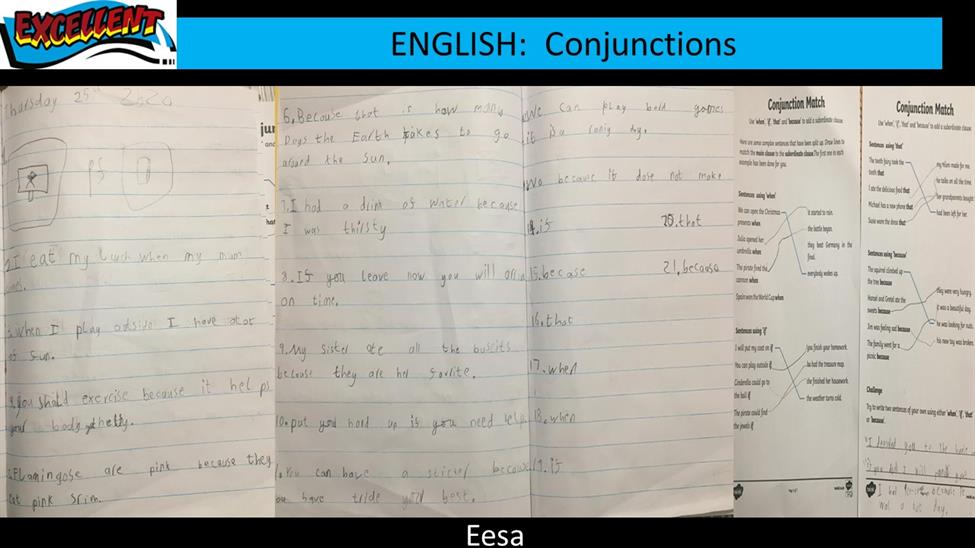 EXCELLENT
ENGLISH: Conjunctions
Thursday 25th
2. I eat my Luch when my mum
When I play outside I have alot
of sun.
you should exercise because it helps
your body
Flamingose are pink because they
eat pink srim.
6. Because that is how many
Days the Earth takes to go
around the Sun.
7. I had a drink of water because
I was thirsty
8. If you leave now you will
on time.
9. My sister ate all the buscits
because they are her
10. put you hand up if you need help
You can have a sticter because
you have tride your best.
We can play bord games
if
because it dose not make
14. if
20. that
15. becase
21. becaose
16. that
17. when
18. when
19. if
Conjunction Match
Use 'when', 'if', 'that' and 'because' to add a subordinate clause.
Here are some complex sentences that have been split up. Draw lines to
match the main clause to the subordinate clause. The first one in each
example has been done for you.
Sentences using 'when'
We can open the Christmas
presents when
Julia opened her
umbrella when
The pirate fired the
cannon when
Spain won the World Cup when
it started to rain.
the battle began.
they beat Germany in the
final.
everybody wakes up.
Sentences using 'if'
I will put my coat on if
You can play outside if
Cinderella could go to
the ball if
The pirate could find
the jewels if
you finish your homework.
he had the treasure map.
she finished her housework.
the weather turns cold.
Conjunction Match
Use 'when', 'if', 'that' and 'because' to add a subordinate clause.
Sentences using 'that'
The tooth fairy took the
tooth that
I ate the delicious food that
Michael has a new phone that
Susie wore the dress that
my mum made for me.
he talks on all the time.
her grandparents bought
had been left for her.
Sentences using 'because'
The squirrel climbed up
the tree because
Hansel and Gretel ate the
sweets because
Jim was feeling sad because
The family went for a
picnic because
they were very hungry.
it was a beautiful day.
he was looking for nuts.
his new toy was broken.
Challenge
Try to write two sentences of your own using either 'when', 'if', 'that'
or 'because'.
Eesa